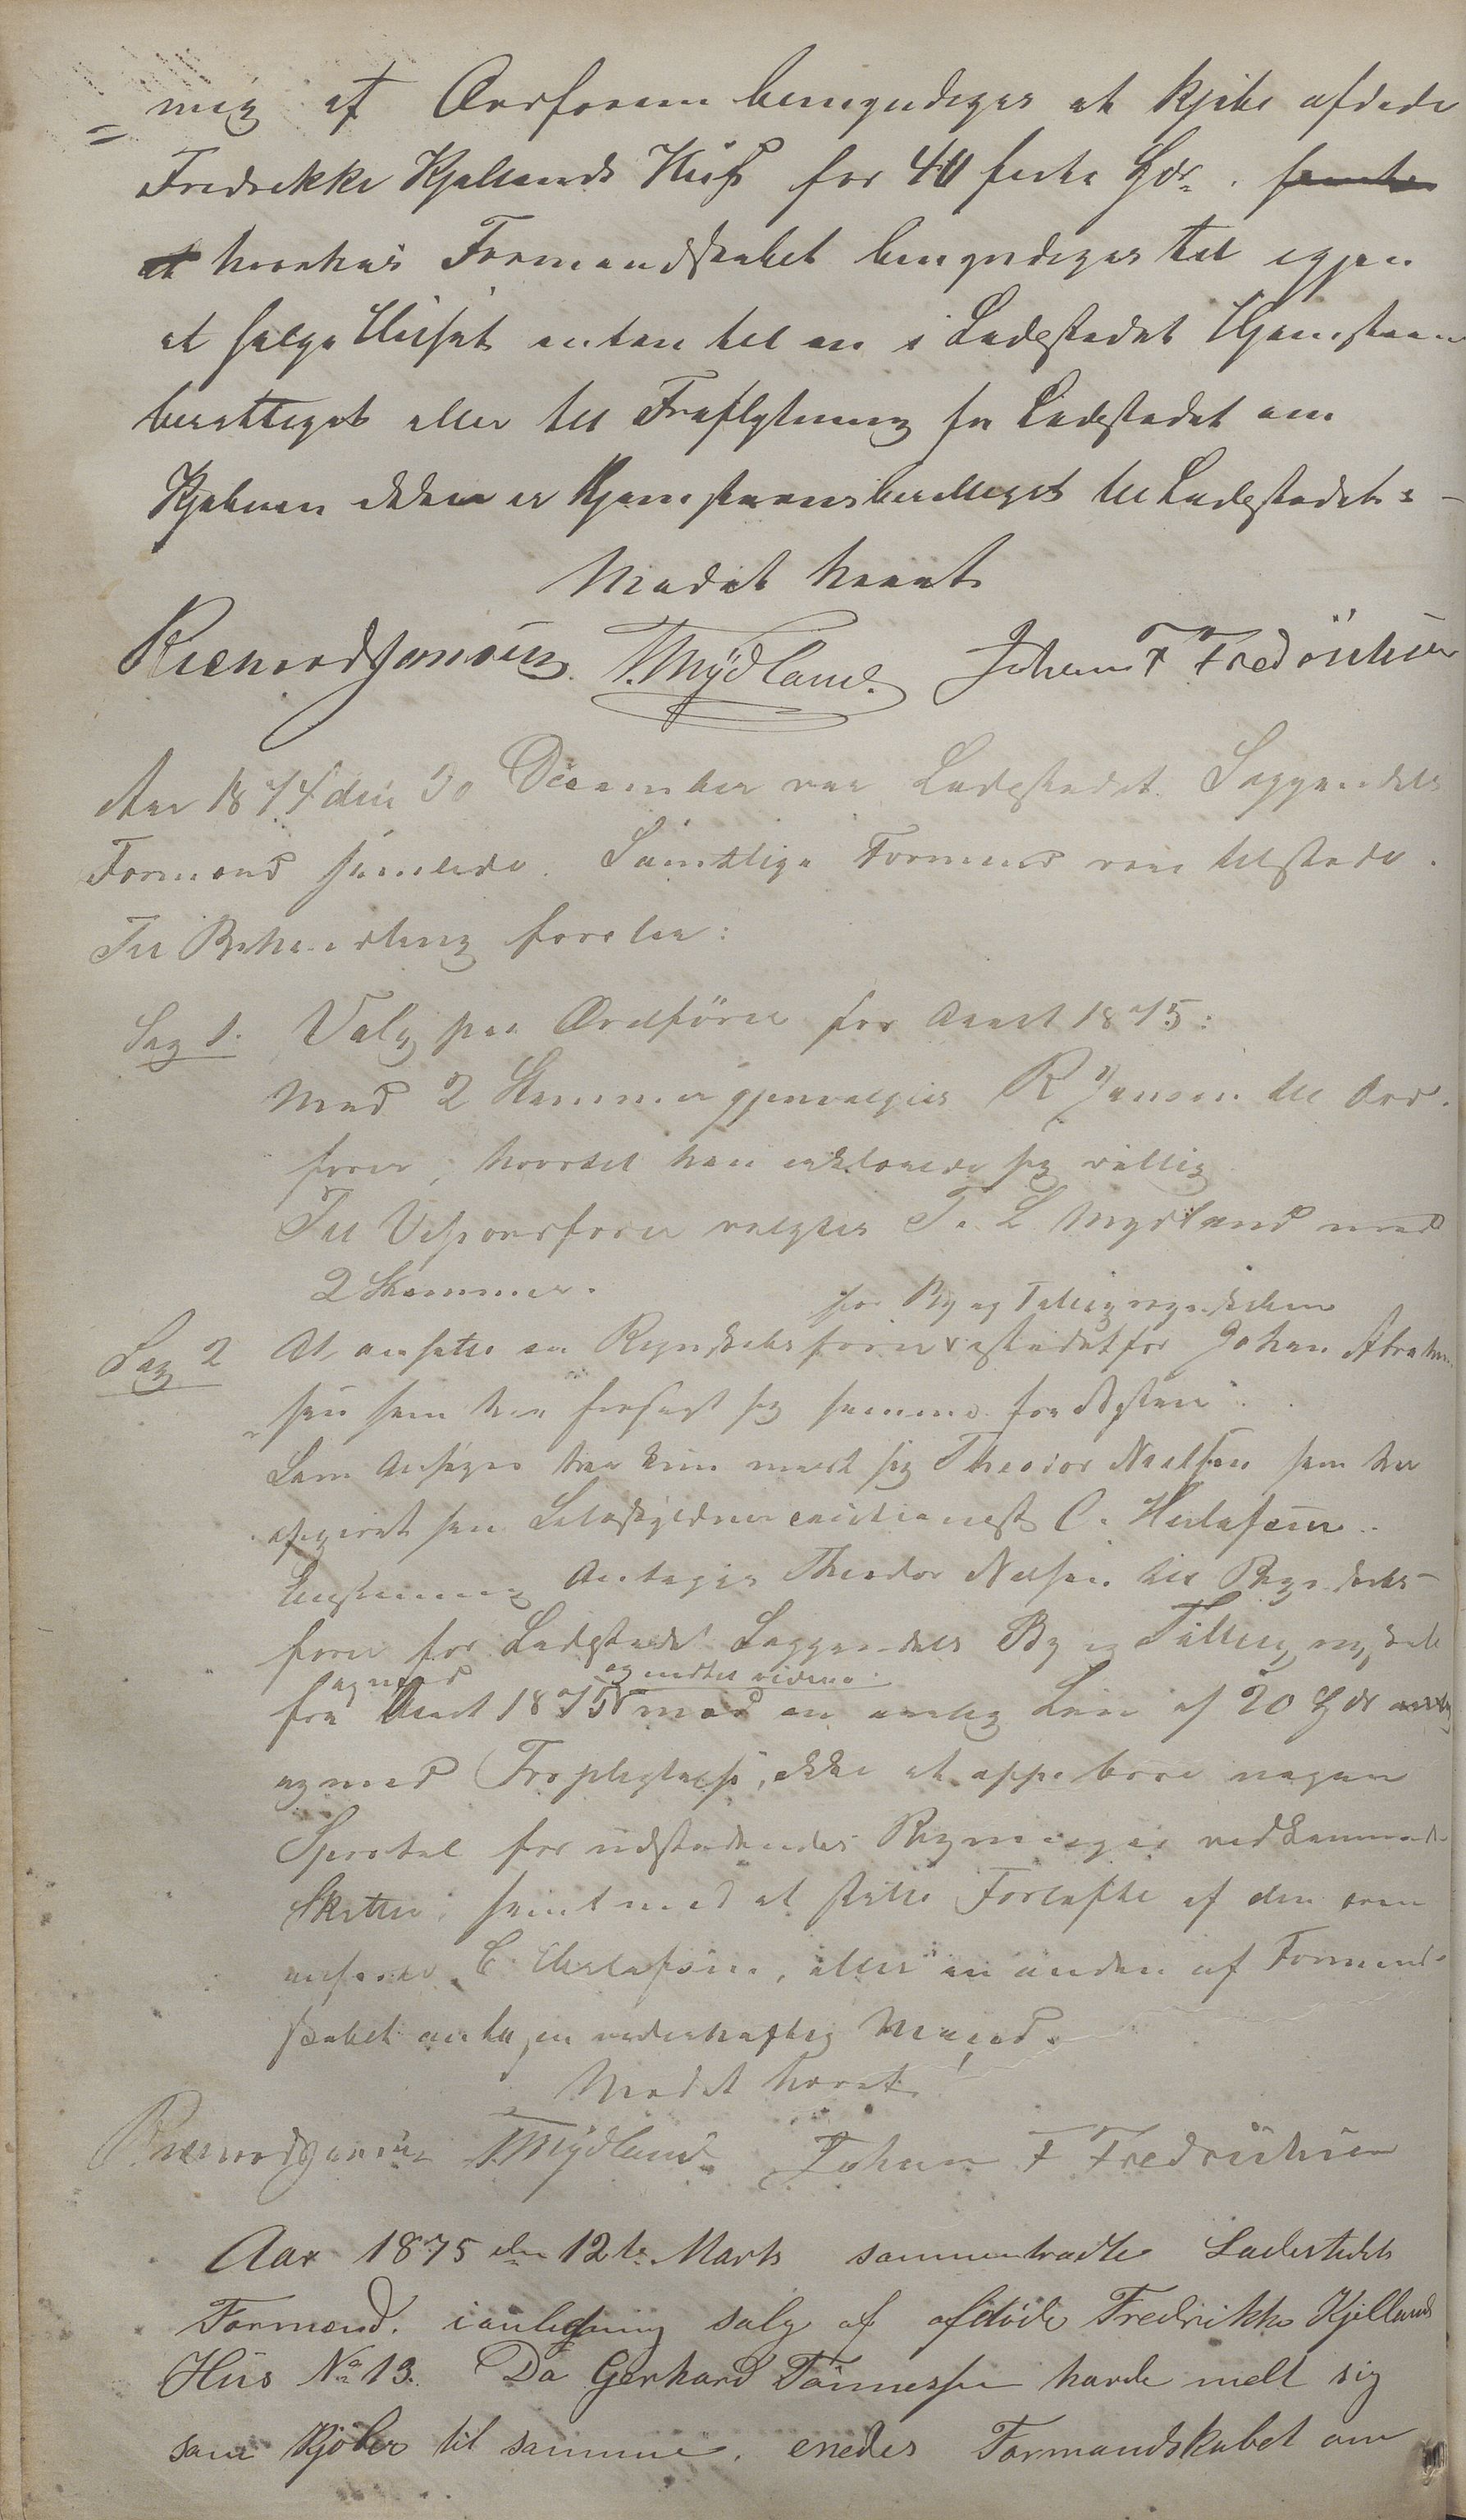 mig af Ordføreren bemyndiges at kjøbe afdøde
Fredrikke Kjellands Huus for 40 førti Spdr.
hvorhos Formandskabet bemyndiges til igjen
at sælge Huset enten til en i Ladestedet Hjemstavns
berettiget eller til Fraflytning fra Ladestedet om
Kjøberen ikke er Hjemstavnsberettiget til Ladestedet. -
Mødet hævet
Reinert Jansen. T. Mydland. Johan F Fredriksen
Aar 1874 den 30 December var Ladestedet Soggendals
Formænd samlede. Samtlige Formænd vare tilstede.
Til Behandling forelaa:
Sag 1. Valg paa Ordfører for Aaret 1875:
Med 2 Stemmer gjenvalgtes R Jansen til Ord-
fører, hvortil han erklærede sig villig
Til Viseordfører valgtes T. L. Mydland med
2 Stemmer.
for By og Fattigregnskaberne
Sag 2 At ansætte en Regnskabsfører istedetfor Johan Abraham
sen som har frasagt sig samme
Som Ansøger har kun meldt sig Theodor Nielsen som har
opgivet som Selvskyldnercautionist C. Herlofsen.
Enstemmig Antages Theodor Nielsen til Regnskabs-
fører for Ladestedet Soggendals By og Fattigregnskab
og med og indtil videre
fra Aaret 1875 med en aarlig Løn af 20 Spdr
og med Forpligtelse, ikke at oppebære nogen
Sportel for udstedendes Regninger vedkommende
Skatter, samt med at stille Forløfte af den oven
anførte C. Herlofsen, eller en anden af Formand-
skabet antagen vederhæftig Mand.
Mødet hævet
Reinert Jansen T. Mydland Johan F Fredriksen
Aar 1875 den 12te Marts sammentraadte Ladestedets
Formænd. ianledning salg af afdøde Fredrikke Kjellands
Hüs No 13. Da Gerhard Tönnessen havde meldt sig
som Kjöber til samme. enedes Formandskabet om